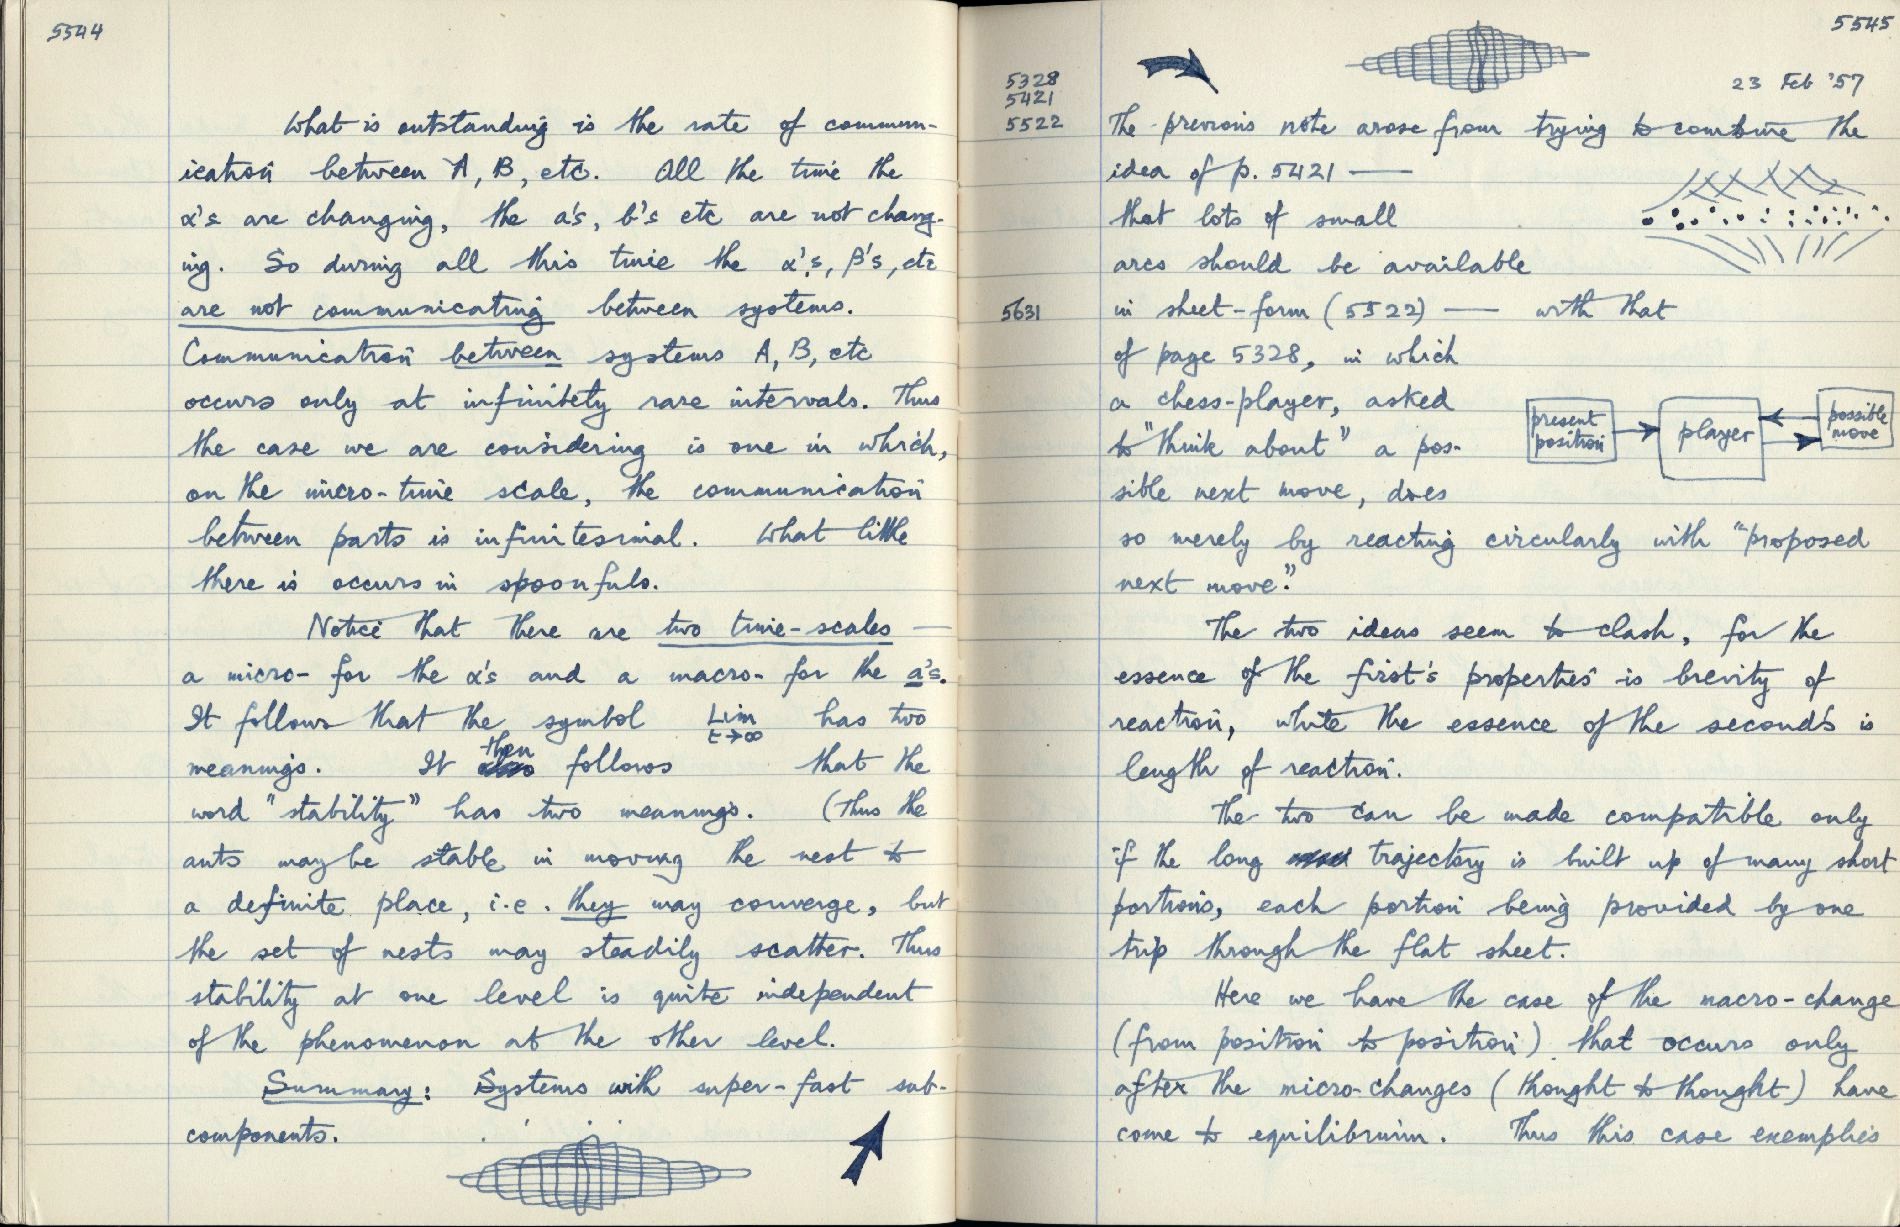 5544
What is outstanding is the rate of commun-
ication between A, B, etc. All the time the
α's are changing, the a's, b's etc are not chang-
ing. So during all this time the α's, β's, etc
are not communicating between systems.
Communication between systems A, B, etc
occurs only at infinitely rare intervals. Thus
the case we are considering is one in which,
on the micro-time scale, the communication
between parts is infinitesimal. What little
there is occurs in spoonfuls.
Notice that there are two time-scales —
a micro- for the α's and a macro- for the a's.
It follows that the symbol Lim t→∞ has two
meanings. It then follows that the
word "stability" has two meanings. (Thus the
ants may be stable in moving the nest to
a definite place, i.e. they may converge, but
the set of nests may steadily scatter. Thus
stability at one level is quite independent
of the phenomenon at the other level.
Summary: Systems with super-fast sub-
components.
5545
23 Feb '57
5328
5421
5522
The previous note arose from trying to combine the
idea of p. 5421 —
that lots of small
arcs should be available
5631
in sheet-form (5522) — with that
of page 5328, in which
a chess-player, asked
to "think about" a pos-
sible next move, does
present position
player
possible move
so merely by reacting circularly with "proposed
next move".
The two ideas seem to clash, for the
essence of the first's properties is brevity of
reaction, while the essence of the second's is
length of reaction.
The two can be made compatible only
if the long trajectory is built up of many short
portions, each portion being provided by one
trip through the flat sheet.
Here we have the case of the macro-change
(from position to position) that occurs only
after the micro-changes (thought to thought) have
come to equilibrium. Thus this case exemplies